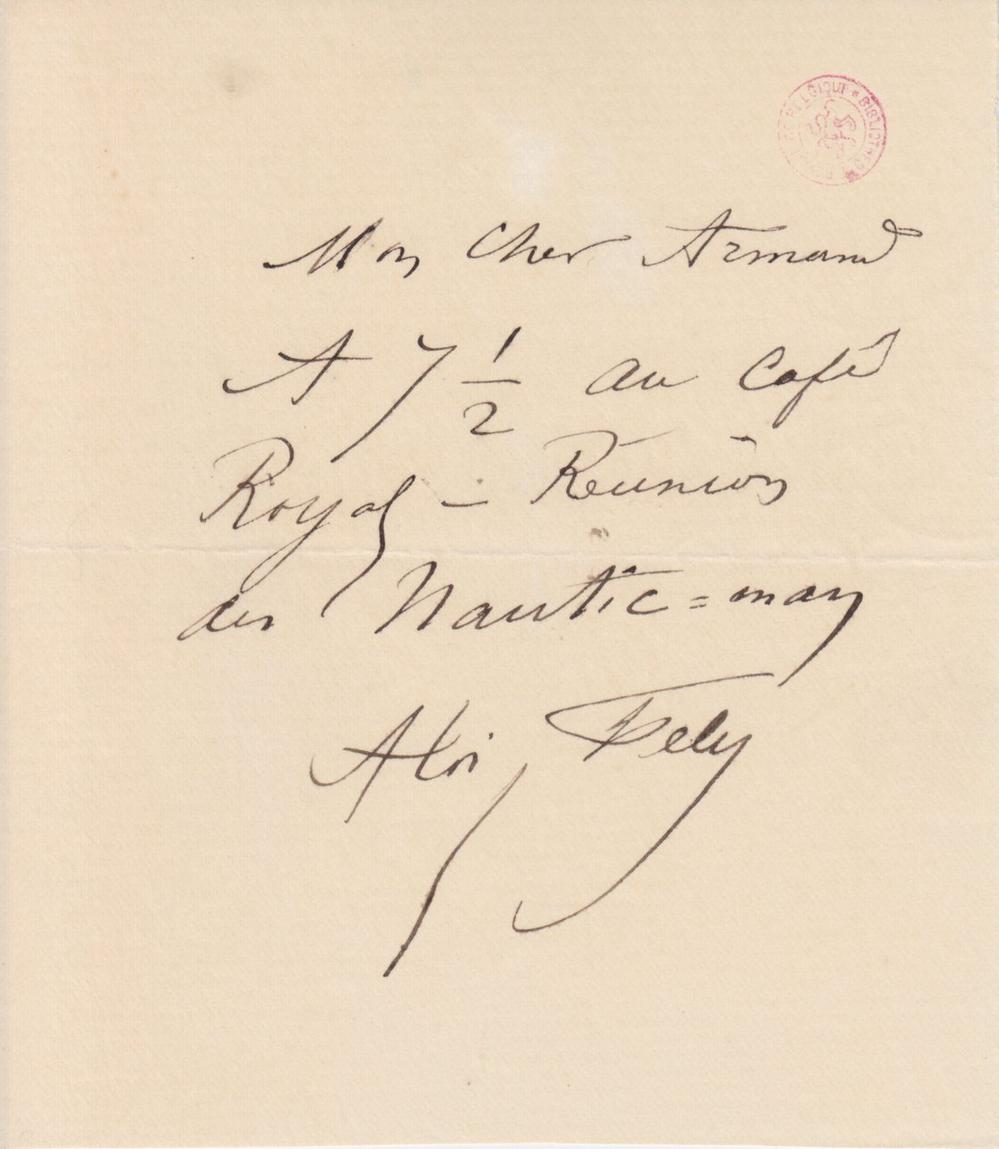 Mon Cher Armand
A 7 1/2 au Café
Royal – Réunion
des Nautic=man
A toi, Fély
BELGIQUE * BIBLIOTHE